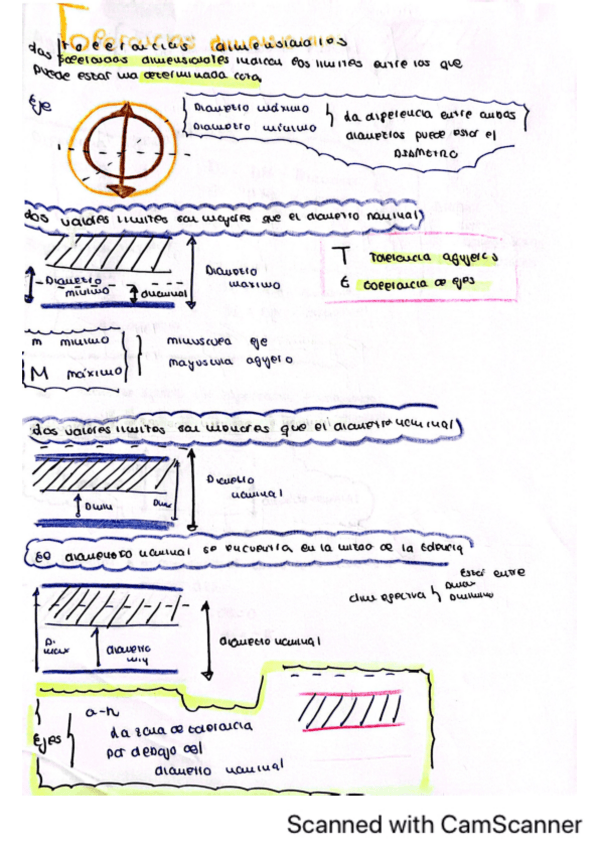 Tolerancias dimensionales
Tolerancias dimensionales
Las tolerancias dimensionales indican los límites entre los que
puede estar una determinada cota.
Eje
Diametro máximo
Diametro mínimo
La diferencia entre ambos
diametros puede estar el
DIAMETRO
Los valores limites son mayores que el diametro nominal
Diametro
minimo
dnominal
Diametro
maximo
T Tolerancia agujeros
t tolerancia de ejes
m minimo
M máximo
minuscula eje
mayuscula agujero
Los valores limites son menores que el diametro nominal
Dmin
Diametro
nominal
El diametro nominal se encuentra en la mitad de la tolerancia
Estar entre
Dmax
Dminimo
Di
max
diametro
min
diametro nominal
Ejes
a-h
La zona de tolerancia
por debajo del
diametro nominal
Scanned with CamScanner